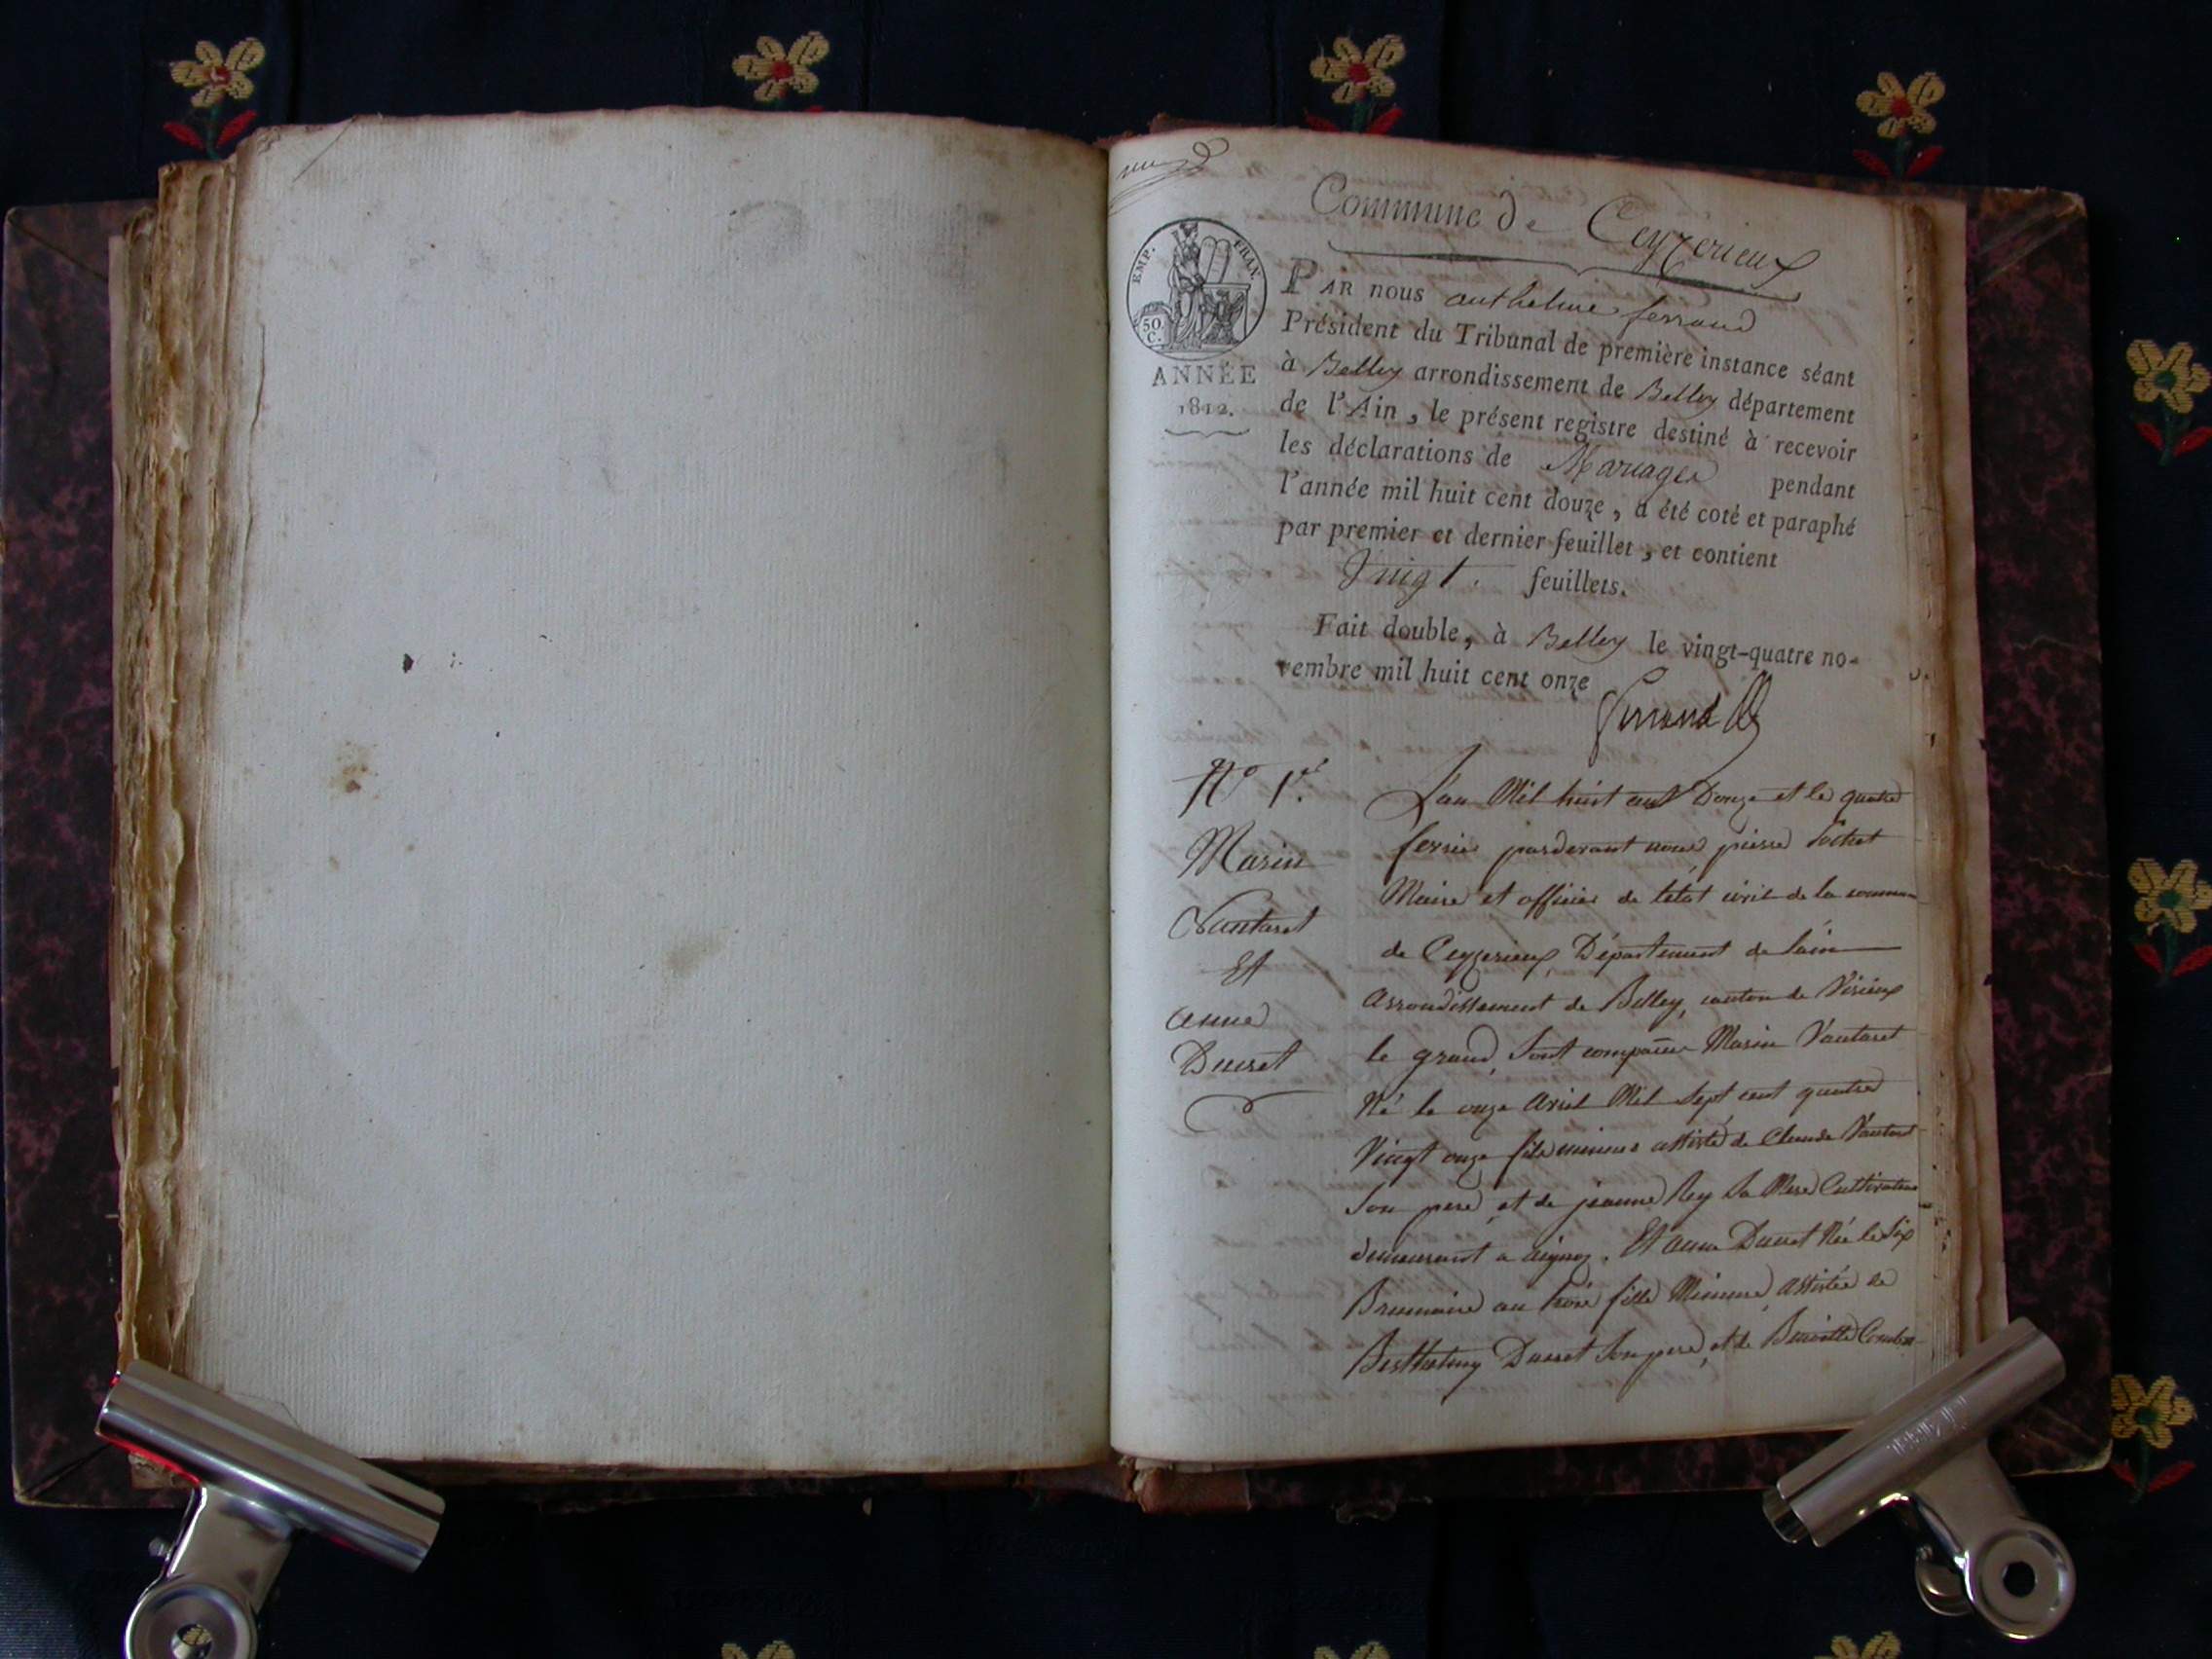 Commune de Ceyzerieux
EMP. FRAN.
50 C.
ANNÉE
1812.
PAR nous anthelme ferrand
Président du Tribunal de première instance séant
à Belley arrondissement de Belley département
de l'Ain, le présent registre destiné à recevoir
les déclarations de Mariages pendant
l'année mil huit cent douze, a été coté et paraphé
par premier et dernier feuillet, et contient
Vingt. feuillets.
Fait double, à Belley le vingt-quatre no-
vembre mil huit cent onze
ferrand
No 1er.
Marin
Vantaret
Et
anne
Ducret
L'an Mil huit cent Douze et le quatre
fevrier pardevant nous pierre Sochet
Maire et officier de letat civil de la commun
de Ceyzerieux, Département de Lain
Arrondissement de Belley, canton de Virieux
le grand, sont comparu Marin Vantaret
Né le onze Avril Mil Sept cent quatre
Vingt onze fils mineur assisté de Claude Vantaret
Son pere, et de jeanne Rey Sa Mere Cultivateurs
demeurant a aignoz. Et anne Ducret Née le Six
Brumaire an trois fille Mineure, assistée de
Berthelemy Ducret Son pere, et de Benoitte